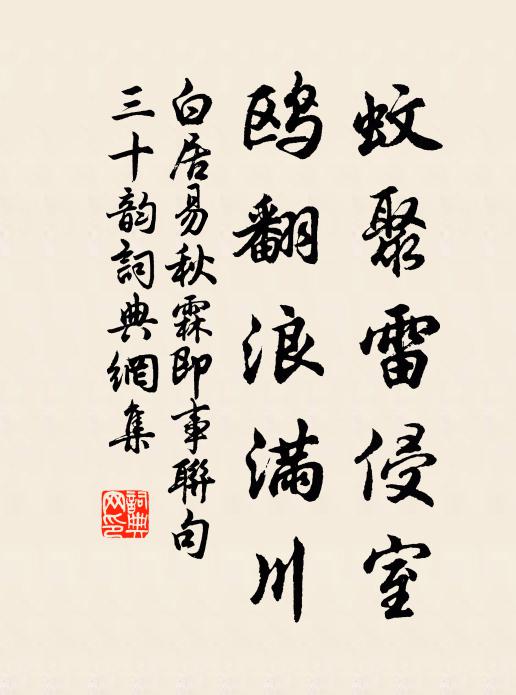 蚊聚雷侵室
鸥翻浪满川
白居易秋霖即事聯句
三十韵詞典網集
詞典网印